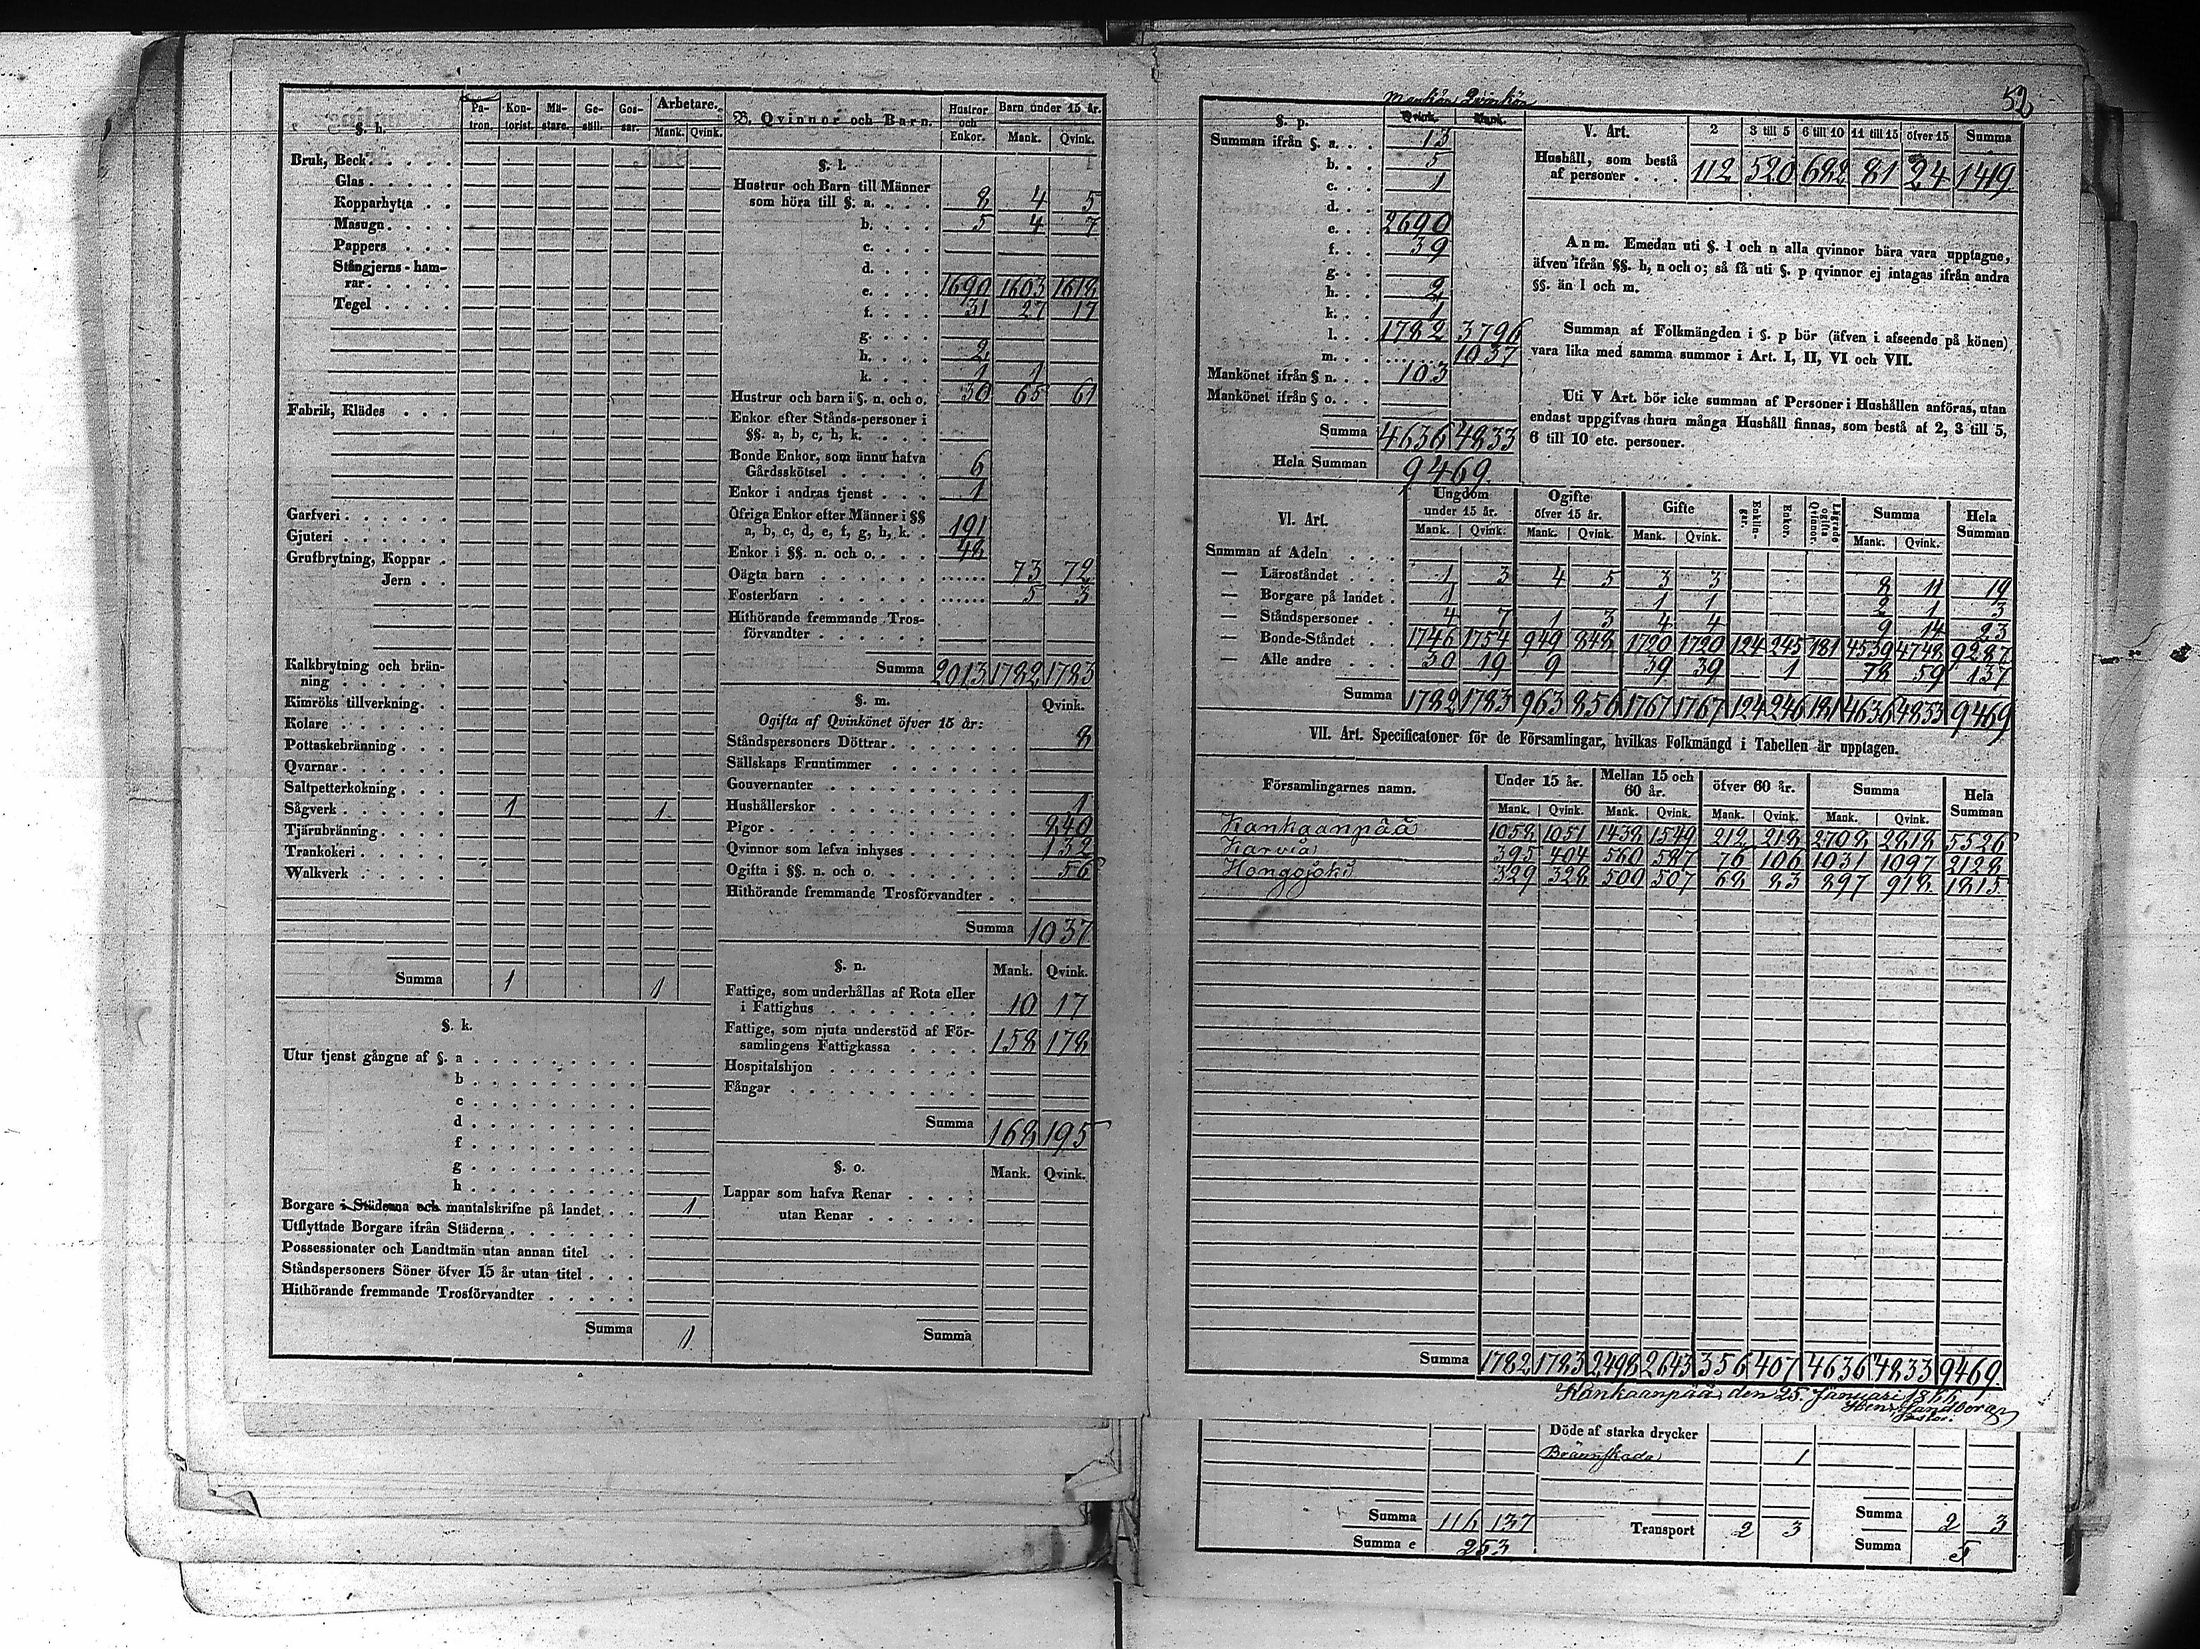 52
§. h. Pa-tron. Kon-torist. Mä-stare. Ge-säll. Gos-sar. Arbetare. Mank. Qvink.
Bruk, Beck
Glas
Kopparhytta
Masugn
Pappers
Stångjerns-ham-
rar
Tegel
Fabrik, Klädes
Garfveri
Gjuteri
Grufbrytning, Koppar
Jern
Kalkbrytning och brän-
ning
Kimröks tillverkning
Kolare
Pottaskebränning
Qvarnar
Saltpetterkokning
Sågverk 1 1
Tjärubränning
Trankokeri
Walkverk
Summa 1 1
§. k.
Utur tjenst gångne af §. a
b
c
d
f
g
h
Borgare i Städerna och mantalskrifne på landet 1
Utflyttade Borgare ifrån Städerna
Possessionater och Landtmän utan annan titel
Ståndspersoners Söner öfver 15 år utan titel
Hithörande fremmande Trosförvandter
Summa 1
B. Qvinnor och Barn. Hustror och Enkor. Barn under 15 år. Mank. Qvink.
§. l.
Hustrur och Barn till Männer
som höra till §. a. 8 4 5
b. 5 4 7
c.
d.
e. 1690 1603 1618
f. 31 27 17
g.
h. 2
k. 1 1
Hustrur och barn i §. n, och o. 30 65 61
Enkor efter Stånds-personer i
§§. a, b, c, h, k.
Bonde Enkor, som ännu hafva
Gårdsskötsel 6
Enkor i andras tjenst 1
Öfriga Enkor efter Männer i §§
a, b, c, d, e, f, g, h, k. 191
Enkor i §§. n. och o. 48
Oägta barn 73 72
Fosterbarn 5 3
Hithörande fremmande Tros-
förvandter
Summa 2013 1782 1783
§. m. Qvink.
Ogifta af Qvinkönet öfver 15 år:
Ståndspersoners Döttrar 8
Sällskaps Fruntimmer
Gouvernanter
Hushållerskor 1
Pigor 840
Qvinnor som lefva inhyses 132
Ogifta i §§. n. och o. 56
Hithörande fremmande Trosförvandter
Summa 1037
§. n. Mank. Qvink.
Fattige, som underhållas af Rota eller
i Fattighus 10 17
Fattige, som njuta understöd af För-
samlingens Fattigkassa 158 178
Hospitalshjon
Fångar
Summa 168 195
§. o. Mank. Qvink.
Lappar som hafva Renar
utan Renar
Summa
Mankön Qvinkön
§. p. Qvink. Mank.
Summan ifrån §. a. 13
b. 5
c. 1
d.
e. 2690
f. 39
g.
h. 2
k. 1
l. 1782 3796
m. 1037
Mankönet ifrån § n. 103
Mankönet ifrån § o.
Summa 4636 4833
Hela Summan 9469.
V. Art. 2 3 till 5 6 till 10 11 till 15 öfver 15 Summa
Hushåll, som bestå
af personer 112 520 682 81 24 1419.
Anm. Emedan uti §. l och n alla qvinnor bära vara upptagne,
äfven ifrån §§. h, n och o; så få uti §. p qvinnor ej intagas ifrån andra
§§. än l och m.
Summan af Folkmängden i §. p bör (äfven i afseende på könen)
vara lika med samma summor i Art. I, II, VI och VII.
Uti V Art. bör icke summan af Personer i Hushållen anföras, utan
endast uppgifvas huru många Hushåll finnas, som bestå af 2, 3 till 5,
6 till 10 etc. personer.
VI. Art. Ungdom under 15 år. Ogifte öfver 15 år. Gifte Enklin-gar. Enkor. Lägrade ogifta Qvinnor. Summa Hela Summan
Mank. Qvink. Mank. Qvink. Mank. Qvink. Mank. Qvink.
Summan af Adeln
— Läroståndet 1 3 4 5 3 3 8 11 19
— Borgare på landet 1 1 1 2 1 3
— Ståndspersoner 4 7 1 3 4 4 9 14 23
— Bonde-Ståndet 1746 1754 949 848 1720 1720 124 245 181 4539 4748 9287
— Alle andre 30 19 9 39 39 1 78 59 137
Summa 1782 1783 963 856 1767 1767 124 246 181 4636 4833 9469
VII. Art. Specificatoner för de Församlingar, hvilkas Folkmängd i Tabellen är upptagen.
Församlingarnes namn. Under 15 år. Mellan 15 och 60 år. öfver 60 år. Summa Hela Summan
Mank. Qvink. Mank. Qvink. Mank. Qvink. Mank. Qvink.
Kankaanpää 1058 1051 1438 1549 212 218 2708 2818 5526
Karvia 395 404 560 587 76 106 1031 1097 2128
Hongojoki 329 328 500 507 68 83 897 918 1815
Summa 1782 1783 2498 2643 356 407 4636 4833 9469.
Kankaanpää, den 25 Januari
Döde af starka drycker
Brännskada 1
Summa 116 137 Transport 2 3 Summa 2 3
Summa e 253 Summa 5